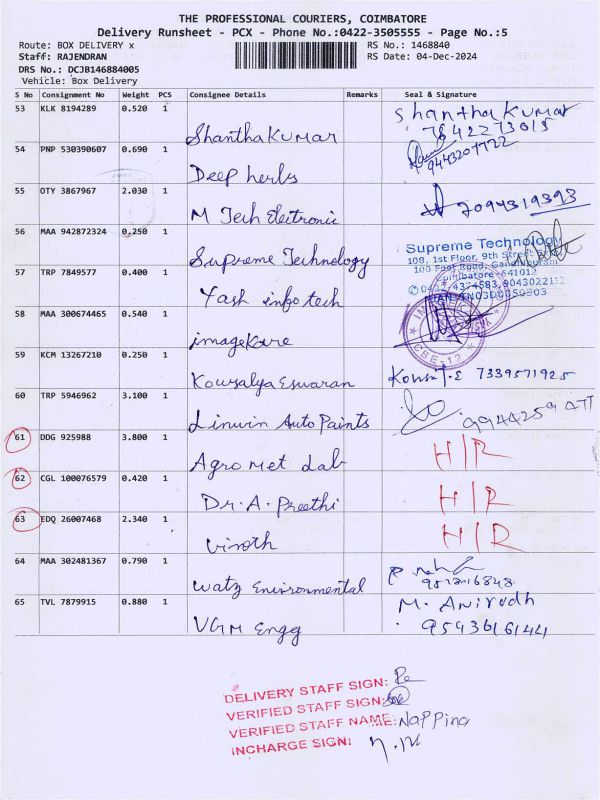 THE PROFESSIONAL COURIERS, COIMBATORE
Delivery Runsheet - PCX - Phone No.:0422-3505555 - Page No.:5
Route: BOX DELIVERY x
RS No.: 1468840
Staff: RAJENDRAN
RS Date: 04-Dec-2024
DRS No.: DCJB146884005
Vehicle: Box Delivery
S No Consignment No Weight PCS Consignee Details Remarks Seal & Signature
53 KLK 8194289 0.520 1 Shantha Kumar Shantha Kumar
7842273015
54 PNP 530390607 0.690 1 Deep herbs 9443207722
55 OTY 3867967 2.030 1 M Tech Electronic 7094319393
56 MAA 942872324 0.250 1 Supreme Technology
Supreme Technology
108, 1st Floor, 9th Street
100 Feet Road, Gandhipuram
Coimbatore-641012
57 TRP 7849577 0.400 1 Yash info tech
58 MAA 300674465 0.540 1 imagekare
CBE-12
59 KCM 13267210 0.250 1 Kowsalya Eswaran Kowsi T.E 7339571925
60 TRP 5946962 3.100 1 Linwin Auto Paints
61 DDG 925988 3.800 1 Agro Met Lab H/R
62 CGL 100076579 0.420 1 Dr. A. Preethi H/R
63 EDQ 26007468 2.340 1 Vinoth H/R
64 MAA 302481367 0.790 1 Watz Environmental
65 TVL 7879915 0.880 1 VGM Engg M. Anirudh
9543616144
DELIVERY STAFF SIGN:
VERIFIED STAFF SIGN:
VERIFIED STAFF NAME: Nappina
INCHARGE SIGN: